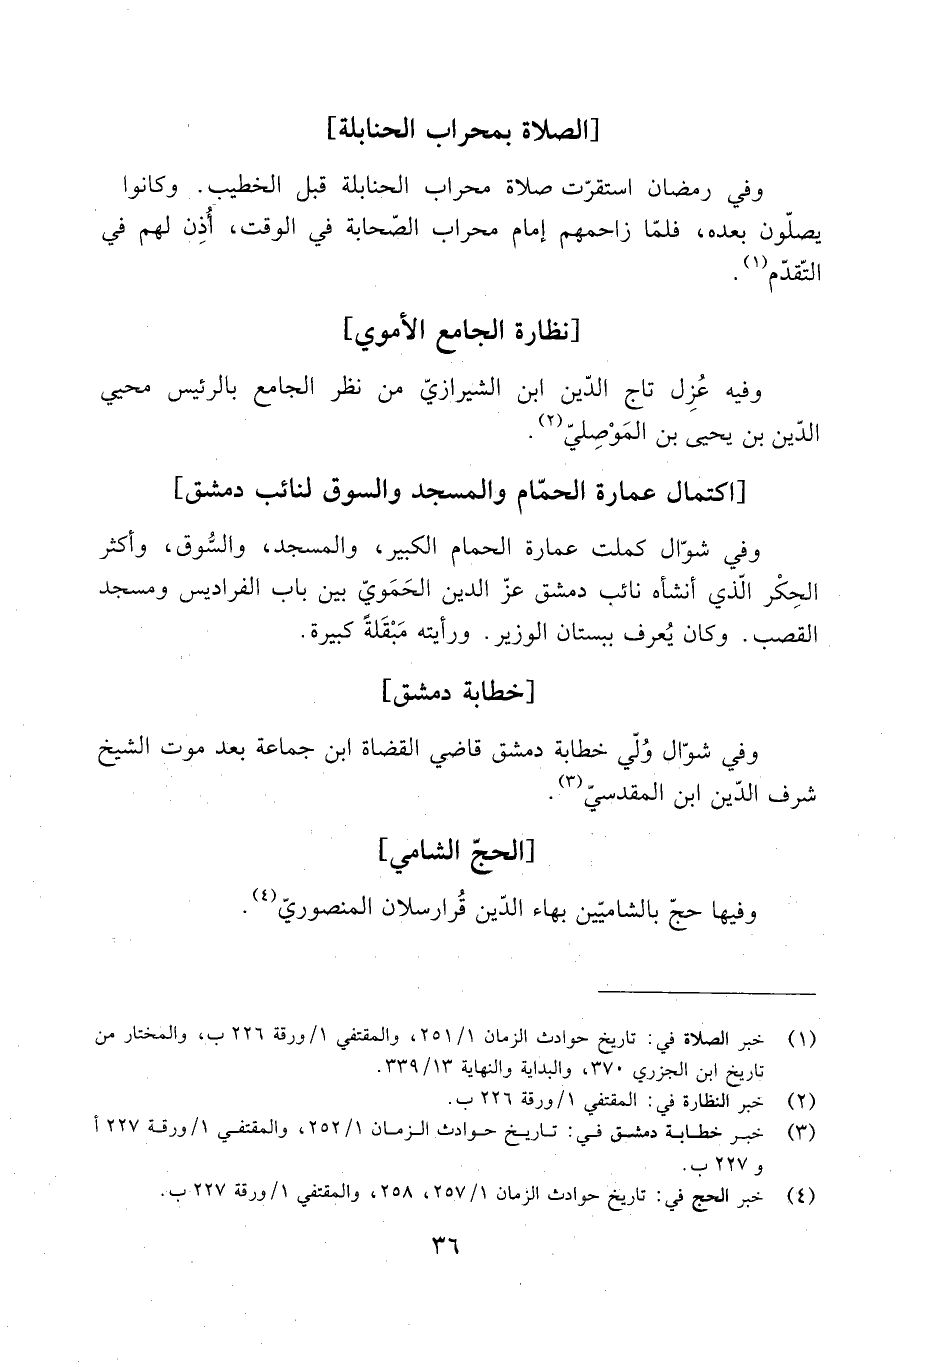 [الصلاة بمحراب الحنابلة]
وفي رمضان استقرّت صلاة محراب الحنابلة قبل الخطيب. وكانوا
يصلّون بعده، فلمّا زاحمهم إمام محراب الصّحابة في الوقت، أُذِن لهم في
التّقدّم(١).
[نظارة الجامع الأموي]
وفيه عُزِل تاج الدّين ابن الشيرازيّ من نظر الجامع بالرئيس محيي
الدّين بن يحيى بن المَوْصِليّ(٢).
[اكتمال عمارة الحمّام والمسجد والسوق لنائب دمشق]
وفي شوّال كملت عمارة الحمام الكبير، والمسجد، والسُّوق، وأكثر
الحِكْر الّذي أنشأه نائب دمشق عزّ الدين الحَمَويّ بين باب الفراديس ومسجد
القصب. وكان يُعرف ببستان الوزير. ورأيته مَبْقَلةً كبيرة.
[خطابة دمشق]
وفي شوّال وُلّي خطابة دمشق قاضي القضاة ابن جماعة بعد موت الشيخ
شرف الدّين ابن المقدسيّ(٣).
[الحجّ الشامي]
وفيها حجّ بالشاميّين بهاء الدّين قُرارسلان المنصوريّ(٤).
(١) خبر الصلاة في: تاريخ حوادث الزمان ٢٥١/١، والمقتفي ١/ورقة ٢٢٦ ب، والمختار من
تاريخ ابن الجزري ٣٧٠، والبداية والنهاية ٣٣٩/١٣.
(٢) خبر النظارة في: المقتفي ١/ورقة ٢٢٦ ب.
(٣) خبر خطابة دمشق في: تاريخ حوادث الزمان ٢٥٢/١، والمقتفي ١/ورقة ٢٢٧ أ
و ٢٢٧ ب.
(٤) خبر الحج في: تاريخ حوادث الزمان ٢٥٧/١، ٢٥٨، والمقتفي ١/ورقة ٢٢٧ ب.
٣٦